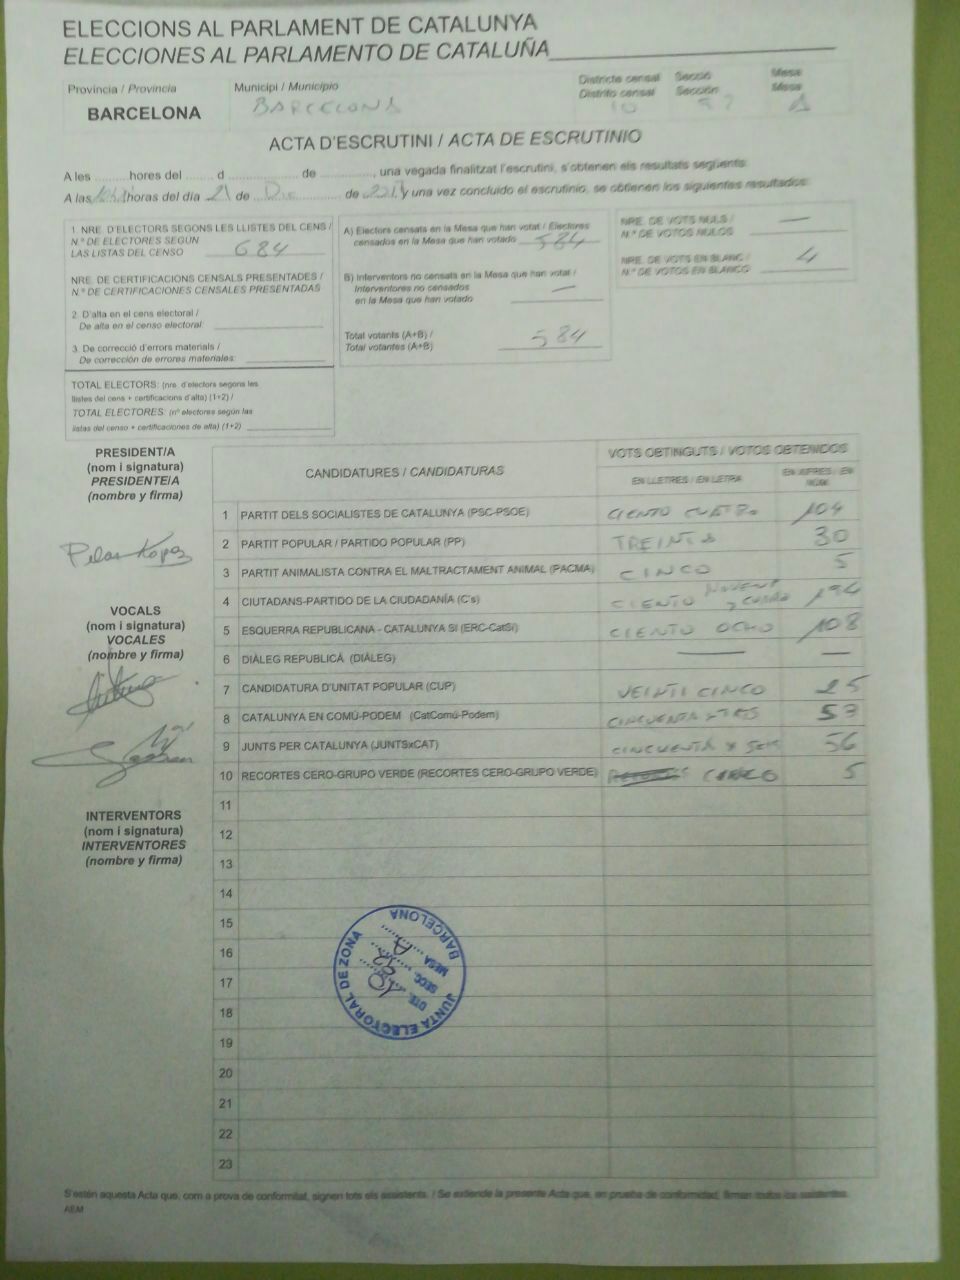 ELECCIONS AL PARLAMENT DE CATALUNYA
ELECCIONES AL PARLAMENTO DE CATALUÑA
Provincia / Provincia
BARCELONA
Municipi / Municipio
BARCELONA
Districte censal
Distrito censal
10
Secció
Sección
Mesa
Mesa
A
ACTA D'ESCRUTINI / ACTA DE ESCRUTINIO
A les ......... hores del ...... d ................ de ............., una vegada finalitzat l'escrutini, s'obtenen els resultats següents:
A las horas del día 21 de Dic de 2017, y una vez concluido el escrutinio, se obtienen los siguientes resultados:
1. NRE. D'ELECTORS SEGONS LES LLISTES DEL CENS /
N.º DE ELECTORES SEGÚN
LAS LISTAS DEL CENSO 684
NRE. DE CERTIFICACIONS CENSALS PRESENTADES /
N.º DE CERTIFICACIONES CENSALES PRESENTADAS
2. D'alta en el cens electoral /
De alta en el censo electoral:
3. De correcció d'errors materials /
De corrección de errores materiales:
TOTAL ELECTORS: (nre. d'electors segons les
llistes del cens + certificacions d'alta) (1+2) /
TOTAL ELECTORES: (nº electores según las
listas del censo + certificaciones de alta) (1+2)
A) Electors censats en la Mesa que han votat / Electores
censados en la Mesa que han votado 584
B) Interventors no censats en la Mesa que han votat /
Interventores no censados
en la Mesa que han votado —
Total votants (A+B) /
Total votantes (A+B) 584
NRE. DE VOTS NULS /
N.º DE VOTOS NULOS —
NRE. DE VOTS EN BLANC /
N.º DE VOTOS EN BLANCO 4
PRESIDENT/A
(nom i signatura)
PRESIDENTE/A
(nombre y firma)
Pilar López
VOCALS
(nom i signatura)
VOCALES
(nombre y firma)
INTERVENTORS
(nom i signatura)
INTERVENTORES
(nombre y firma)
CANDIDATURES / CANDIDATURAS
VOTS OBTINGUTS / VOTOS OBTENIDOS
EN LLETRES / EN LETRA
EN XIFRES / EN NÚM.
1 PARTIT DELS SOCIALISTES DE CATALUNYA (PSC-PSOE) CIENTO CUATRO 104
2 PARTIT POPULAR / PARTIDO POPULAR (PP) TREINTA 30
3 PARTIT ANIMALISTA CONTRA EL MALTRACTAMENT ANIMAL (PACMA) CINCO 5
4 CIUTADANS-PARTIDO DE LA CIUDADANÍA (C's) CIENTO NOVENTA y CUATRO 194
5 ESQUERRA REPUBLICANA - CATALUNYA SÍ (ERC-CatSí) CIENTO OCHO 108
6 DIÀLEG REPUBLICÀ (DIÀLEG) — —
7 CANDIDATURA D'UNITAT POPULAR (CUP) VEINTI CINCO 25
8 CATALUNYA EN COMÚ-PODEM (CatComú-Podem) CINCUENTA Y TRES 53
9 JUNTS PER CATALUNYA (JUNTSxCAT) CINCUENTA Y SEIS 56
10 RECORTES CERO-GRUPO VERDE (RECORTES CERO-GRUPO VERDE) CINCO 5
11
12
13
14
15
16
17
18
19
20
21
22
23
JUNTA ELECTORAL DE ZONA
BARCELONA
DTE. 10
SECC.
MESA A
S'estén aquesta Acta que, com a prova de conformitat, signen tots els assistents. / Se extiende la presente Acta que, en prueba de conformidad, firman todos los asistentes.
AEM